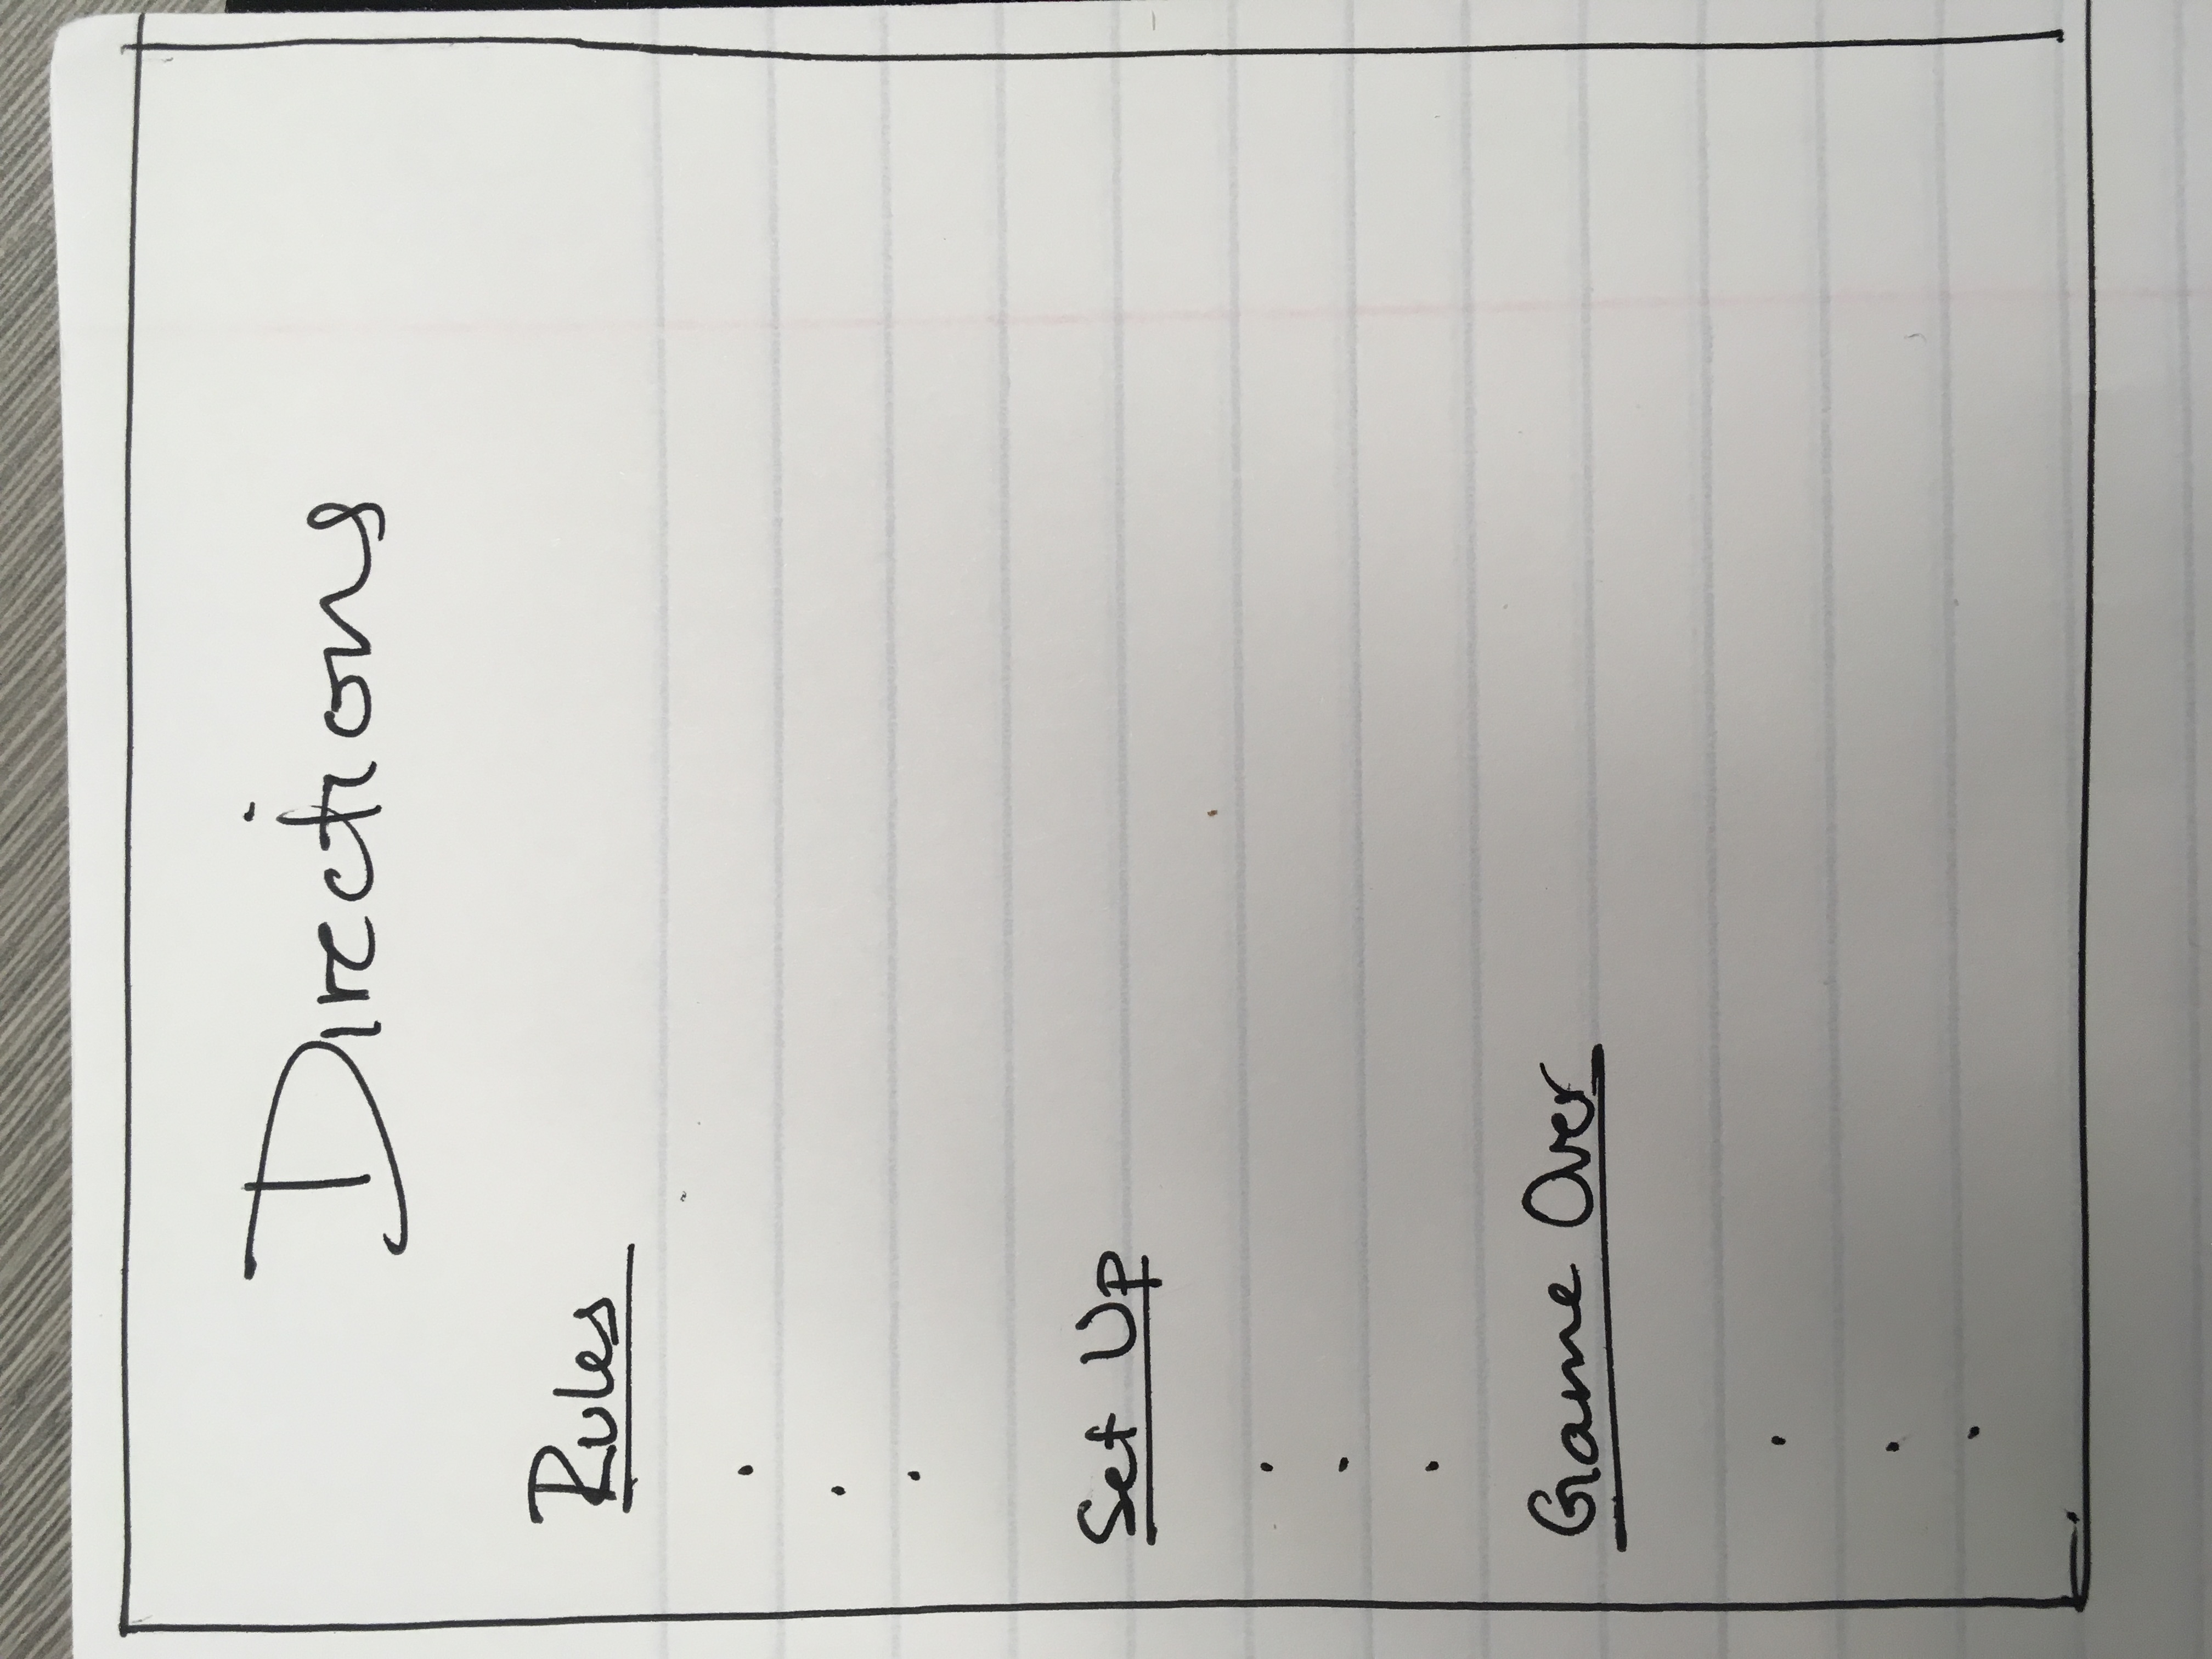 Directions
Rules
•
•
•
Set Up
•
•
•
Game Over
•
•
•